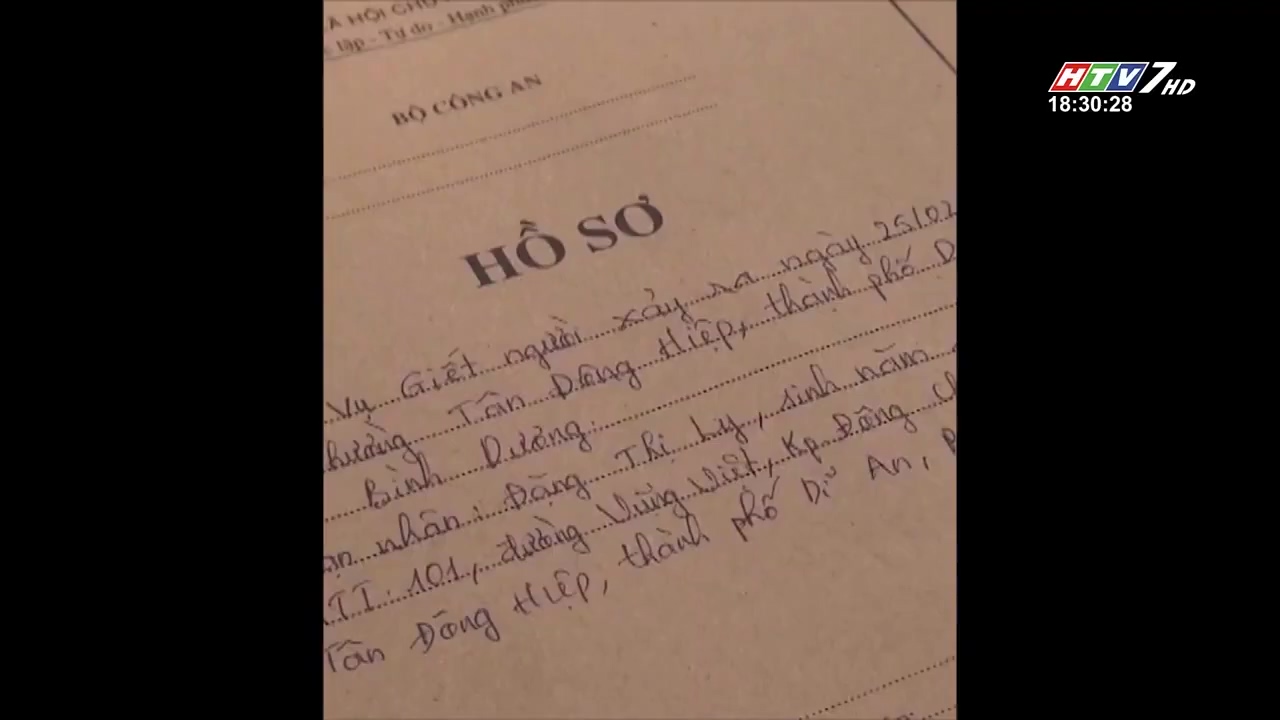 HTV7 HD
18:30:28
Ã HỘI CHỦ
lập - Tự do - Hạnh phú
BỘ CÔNG AN
HỒ SƠ
Vụ Giết người xảy ra ngày 25/02
phường Tân Đông Hiệp, thành phố D
Bình Dương.
ạn nhân: Đặng Thị Ly, sinh năm
TT 101, đường Vũng Việt, Kp Đông Ch
Tân Đông Hiệp, thành phố Dĩ An,